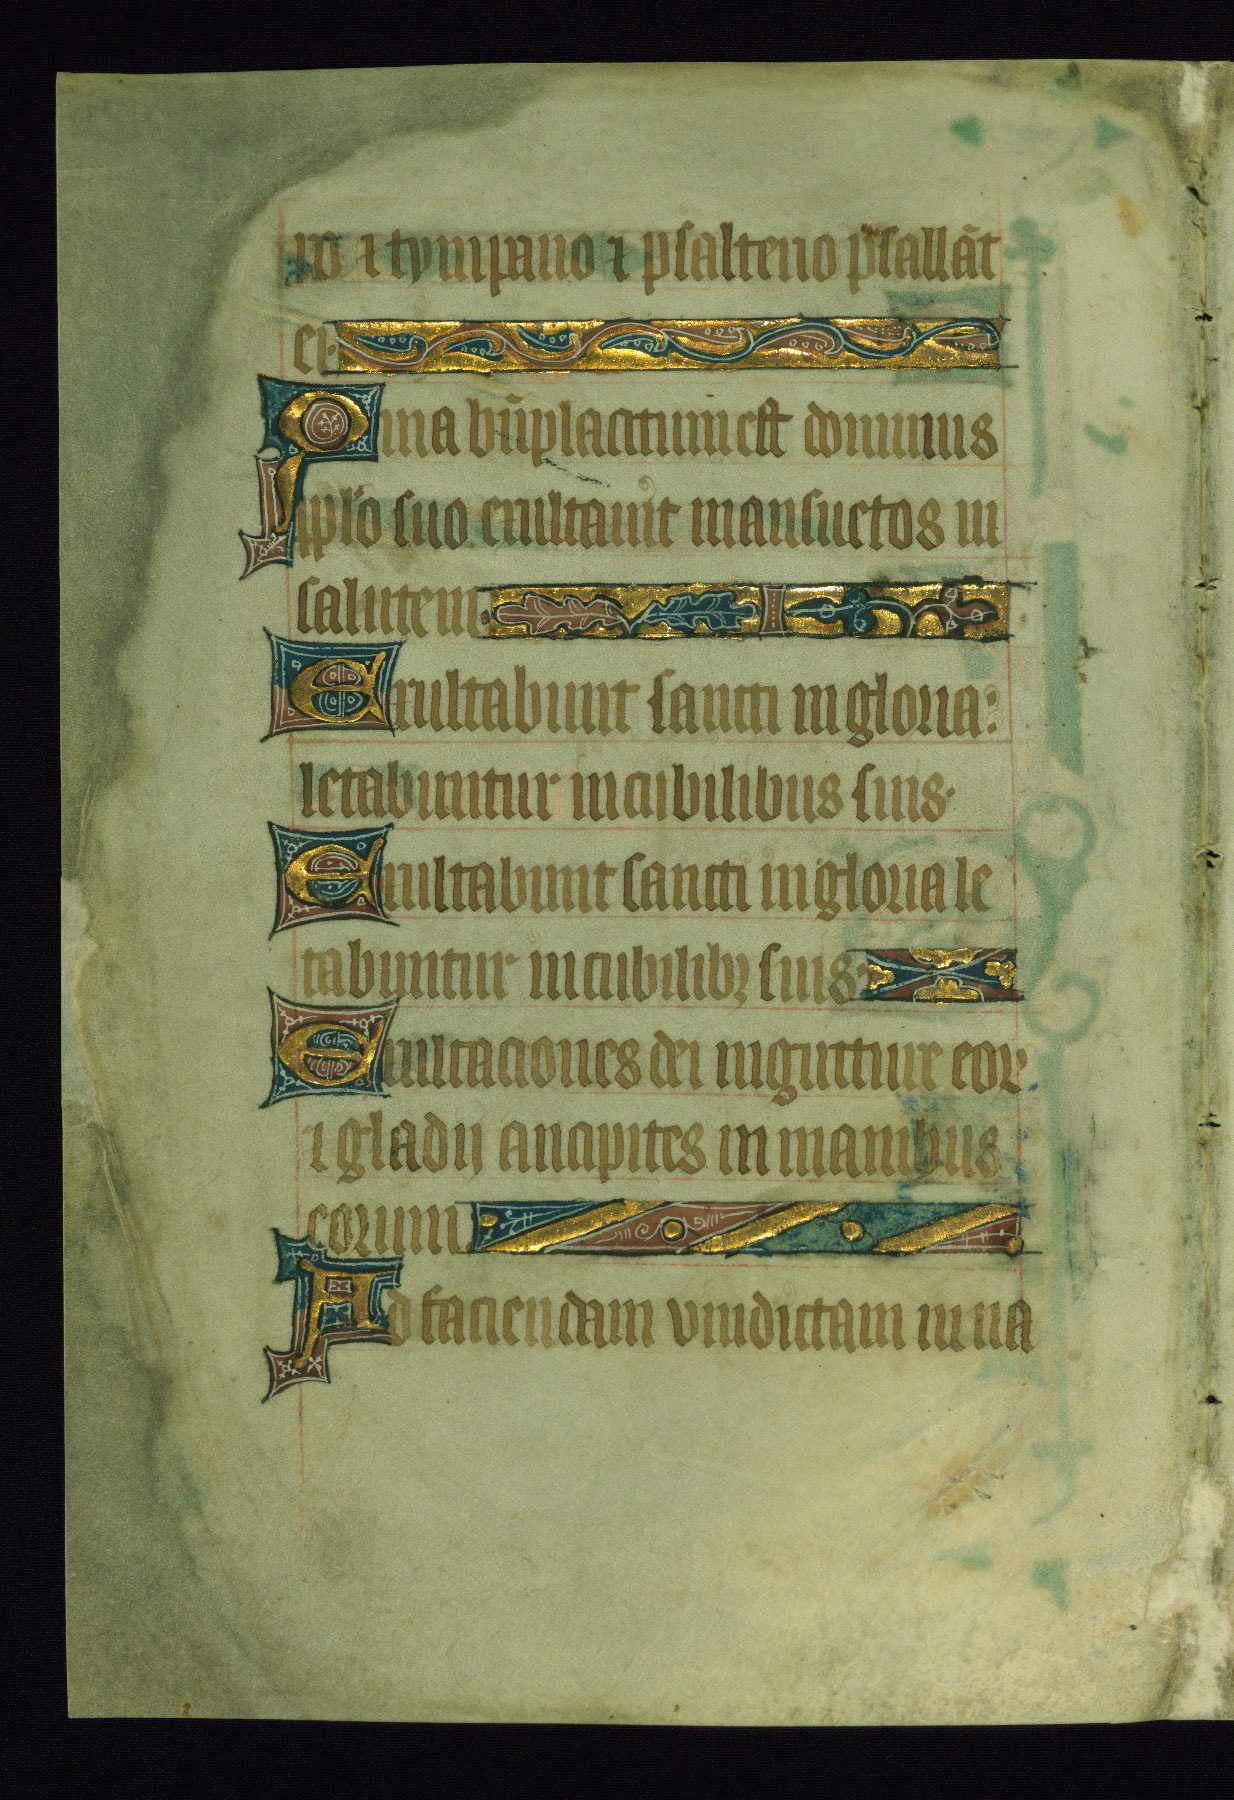 ro ⁊ tympano ⁊ psalterio psallāt
ei·
Quia bn̄placitum est dominus
ipplo suo exultauit mansuetos in
salutem·
Exultabunt sancti in gloria:
letabuntur in cubilibus suis·
Exultabunt sancti in gloria le
tabuntur in cubilibꝫ suis·
Exultaciones dei in gutture eoꝝ
⁊ gladij ancipites in manibus
eorum
Ad faciendam vindictam in na